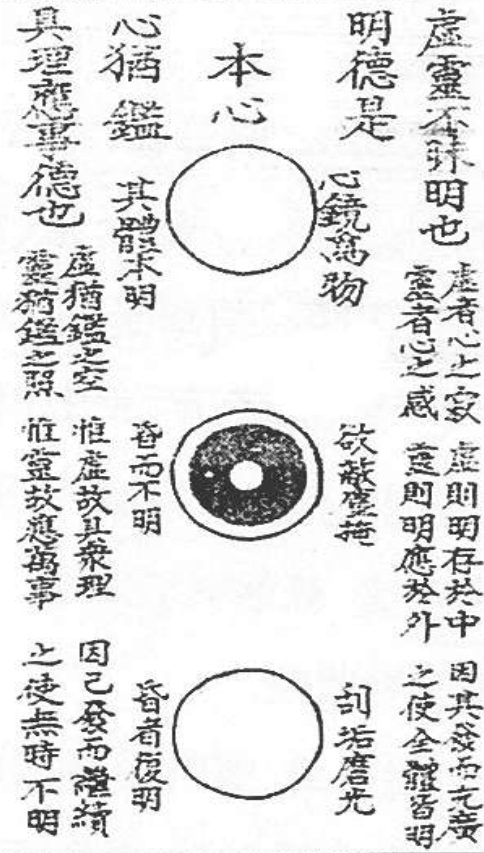 虛靈不昧明也
虛者心之寂
靈者心之感
虛則明存於中
靈則明應於外
因其發而充廣
之使全體皆明
明德是
心鏡萬物
欲蔽塵掩
刮垢磨光
本心
心猶鑑
其體本明
昏而不明
昏者復明
具理應事德也
虛猶鑑之空
靈猶鑑之照
惟虛故具衆理
惟靈故應萬事
因已發而繼續
之使無時不明